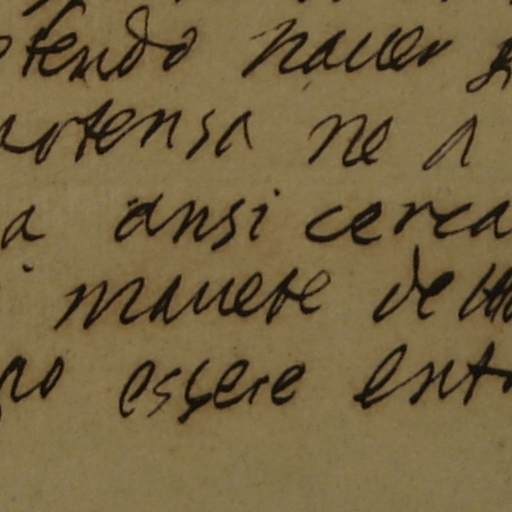 tendo hauer
otensa ne a
a ansi cerca
mauete de
essere ent